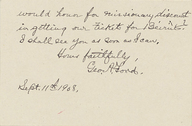 would honor for missionary discount
in getting our ticket for Beirut.
I shall see you as soon as I can.
Yours faithfully,
Geo. A. Ford.
Sept. 11th 1908.